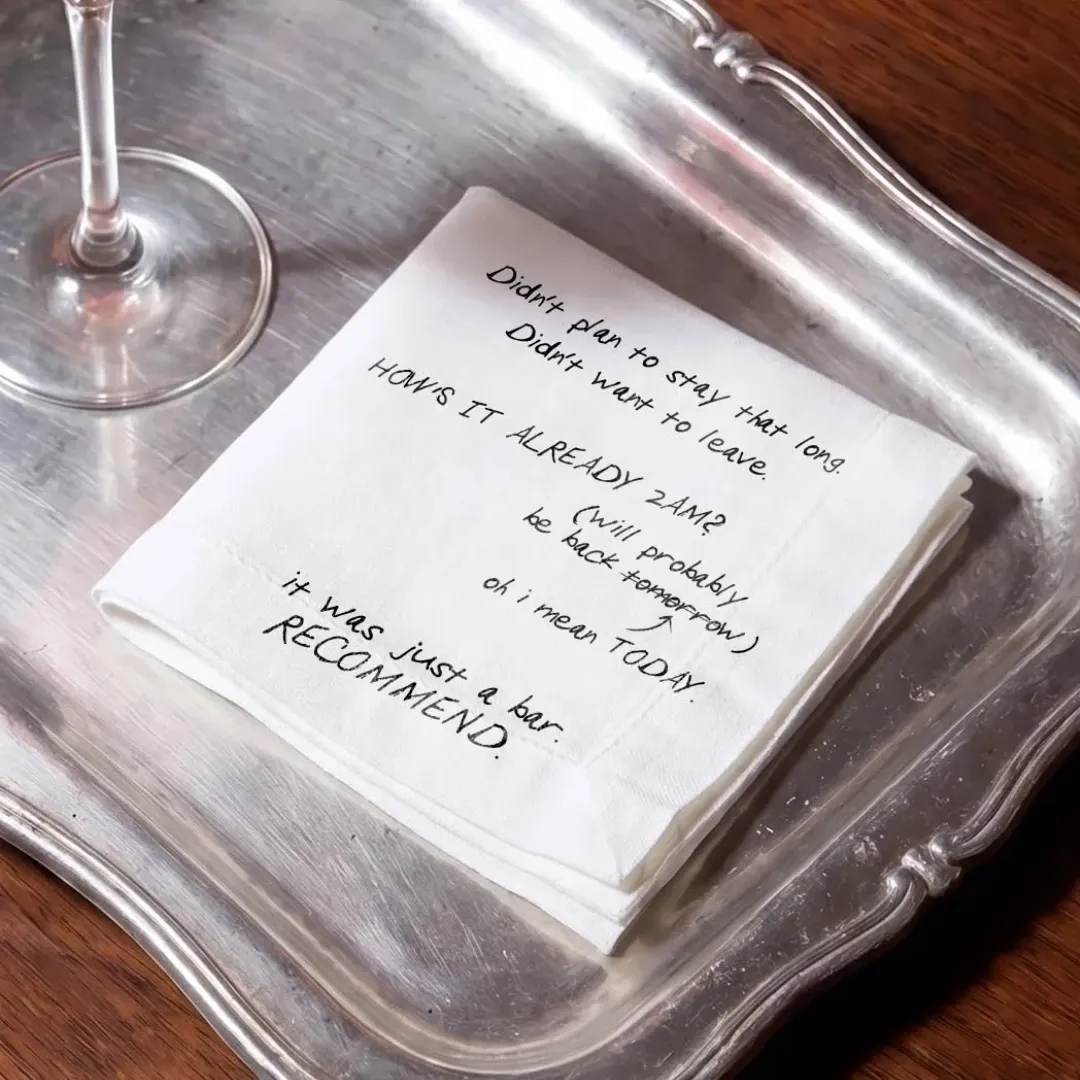 Didn't plan to stay that long.
Didn't want to leave.
HOW'S IT ALREADY 2AM?
(will probably
be back tomorrow)
oh i mean TODAY.
it was just a bar.
RECOMMEND.